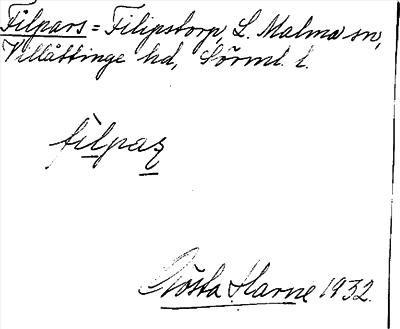 Filpars = Filipstorp, L. Malma sn,
Villåttinge hd, Sörml. l.
filpaʂ
Gösta Harne 1932.